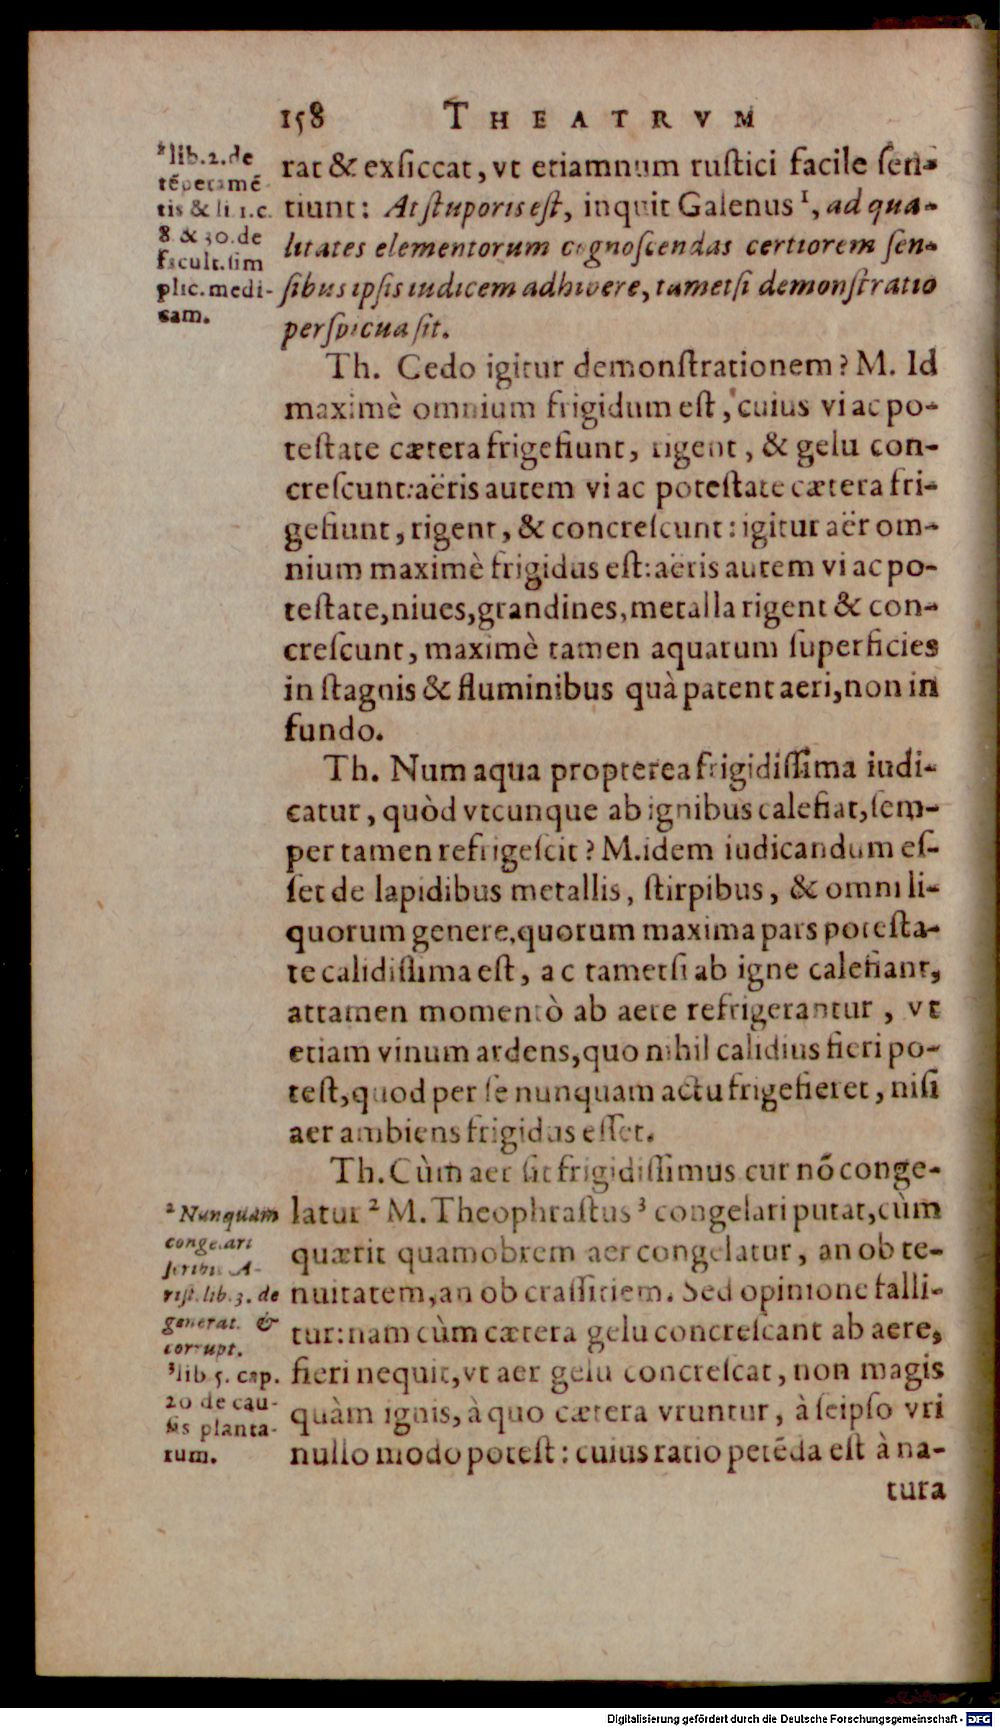 158 THEATRVM
rat & exſiccat, vt etiamnum ruſtici facile ſen-
tiunt: At ſtuporis eſt, inquit Galenus 1, ad qua-
litates elementorum cognoſcendas certiorem ſen-
ſibus ipſis iudicem adhibere, tametſi demonſtratio
perſpicua ſit.
1 lib. 2. de
tẽperamẽ
tis & li. 1. c.
8. & 30. de
facult. ſim
plic. medi-
cam.
Th. Cedo igitur demonſtrationem? M. Id
maximè omnium frigidum eſt, cuius vi ac po-
teſtate cætera frigefiunt, rigent, & gelu con-
creſcunt: aëris autem vi ac poteſtate cætera fri-
gefiunt, rigent, & concreſcunt: igitur aër om-
nium maximè frigidus eſt: aëris autem vi ac po-
teſtate, niues, grandines, metalla rigent & con-
creſcunt, maximè tamen aquarum ſuperficies
in ſtagnis & fluminibus quà patent aeri, non in
fundo.
Th. Num aqua propterea frigidiſſima iudi-
catur, quòd vtcunque ab ignibus calefiat, ſem-
per tamen refrigeſcit? M. idem iudicandum eſ-
ſet de lapidibus metallis, ſtirpibus, & omni li-
quorum genere, quorum maxima pars poteſta-
te calidiſſima eſt, ac tametſi ab igne calefiant,
attamen momentò ab aere refrigerantur, vt
etiam vinum ardens, quo nihil calidius fieri po-
teſt, quod per ſe nunquam actu frigefieret, niſi
aer ambiens frigidus eſſet.
Th. Cùm aer ſit frigidiſſimus cur nõ conge-
latur 2 M. Theophraſtus 3 congelari putat, cùm
quærit quamobrem aer congelatur, an ob te-
nuitatem, an ob craſſitiem. Sed opinione falli-
tur: nam cùm cætera gelu concreſcant ab aere,
fieri nequit, vt aer gelu concreſcat, non magis
quàm ignis, à quo cætera vruntur, à ſeipſo vri
nullo modo poteſt: cuius ratio petẽda eſt à na-
tura
2 Nunquam
congelari
ſcribit A-
riſt. lib. 3. de
generat. &
corrupt.
3 lib. 5. cap.
20 de cau-
ſis planta-
rum.
Digitalisierung gefördert durch die Deutsche Forschungsgemeinschaft - DFG